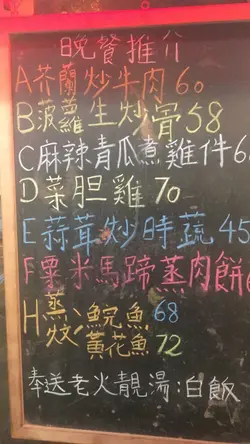 晚餐推介
A芥蘭炒牛肉60
B菠蘿生炒骨58
C麻辣青瓜煮雞件6
D菜胆雞70
E蒜茸炒時蔬45
F粟米馬蹄蒸肉餅6
H蒸/炆 鯇魚68
黃花魚72
奉送老火靚湯:白飯